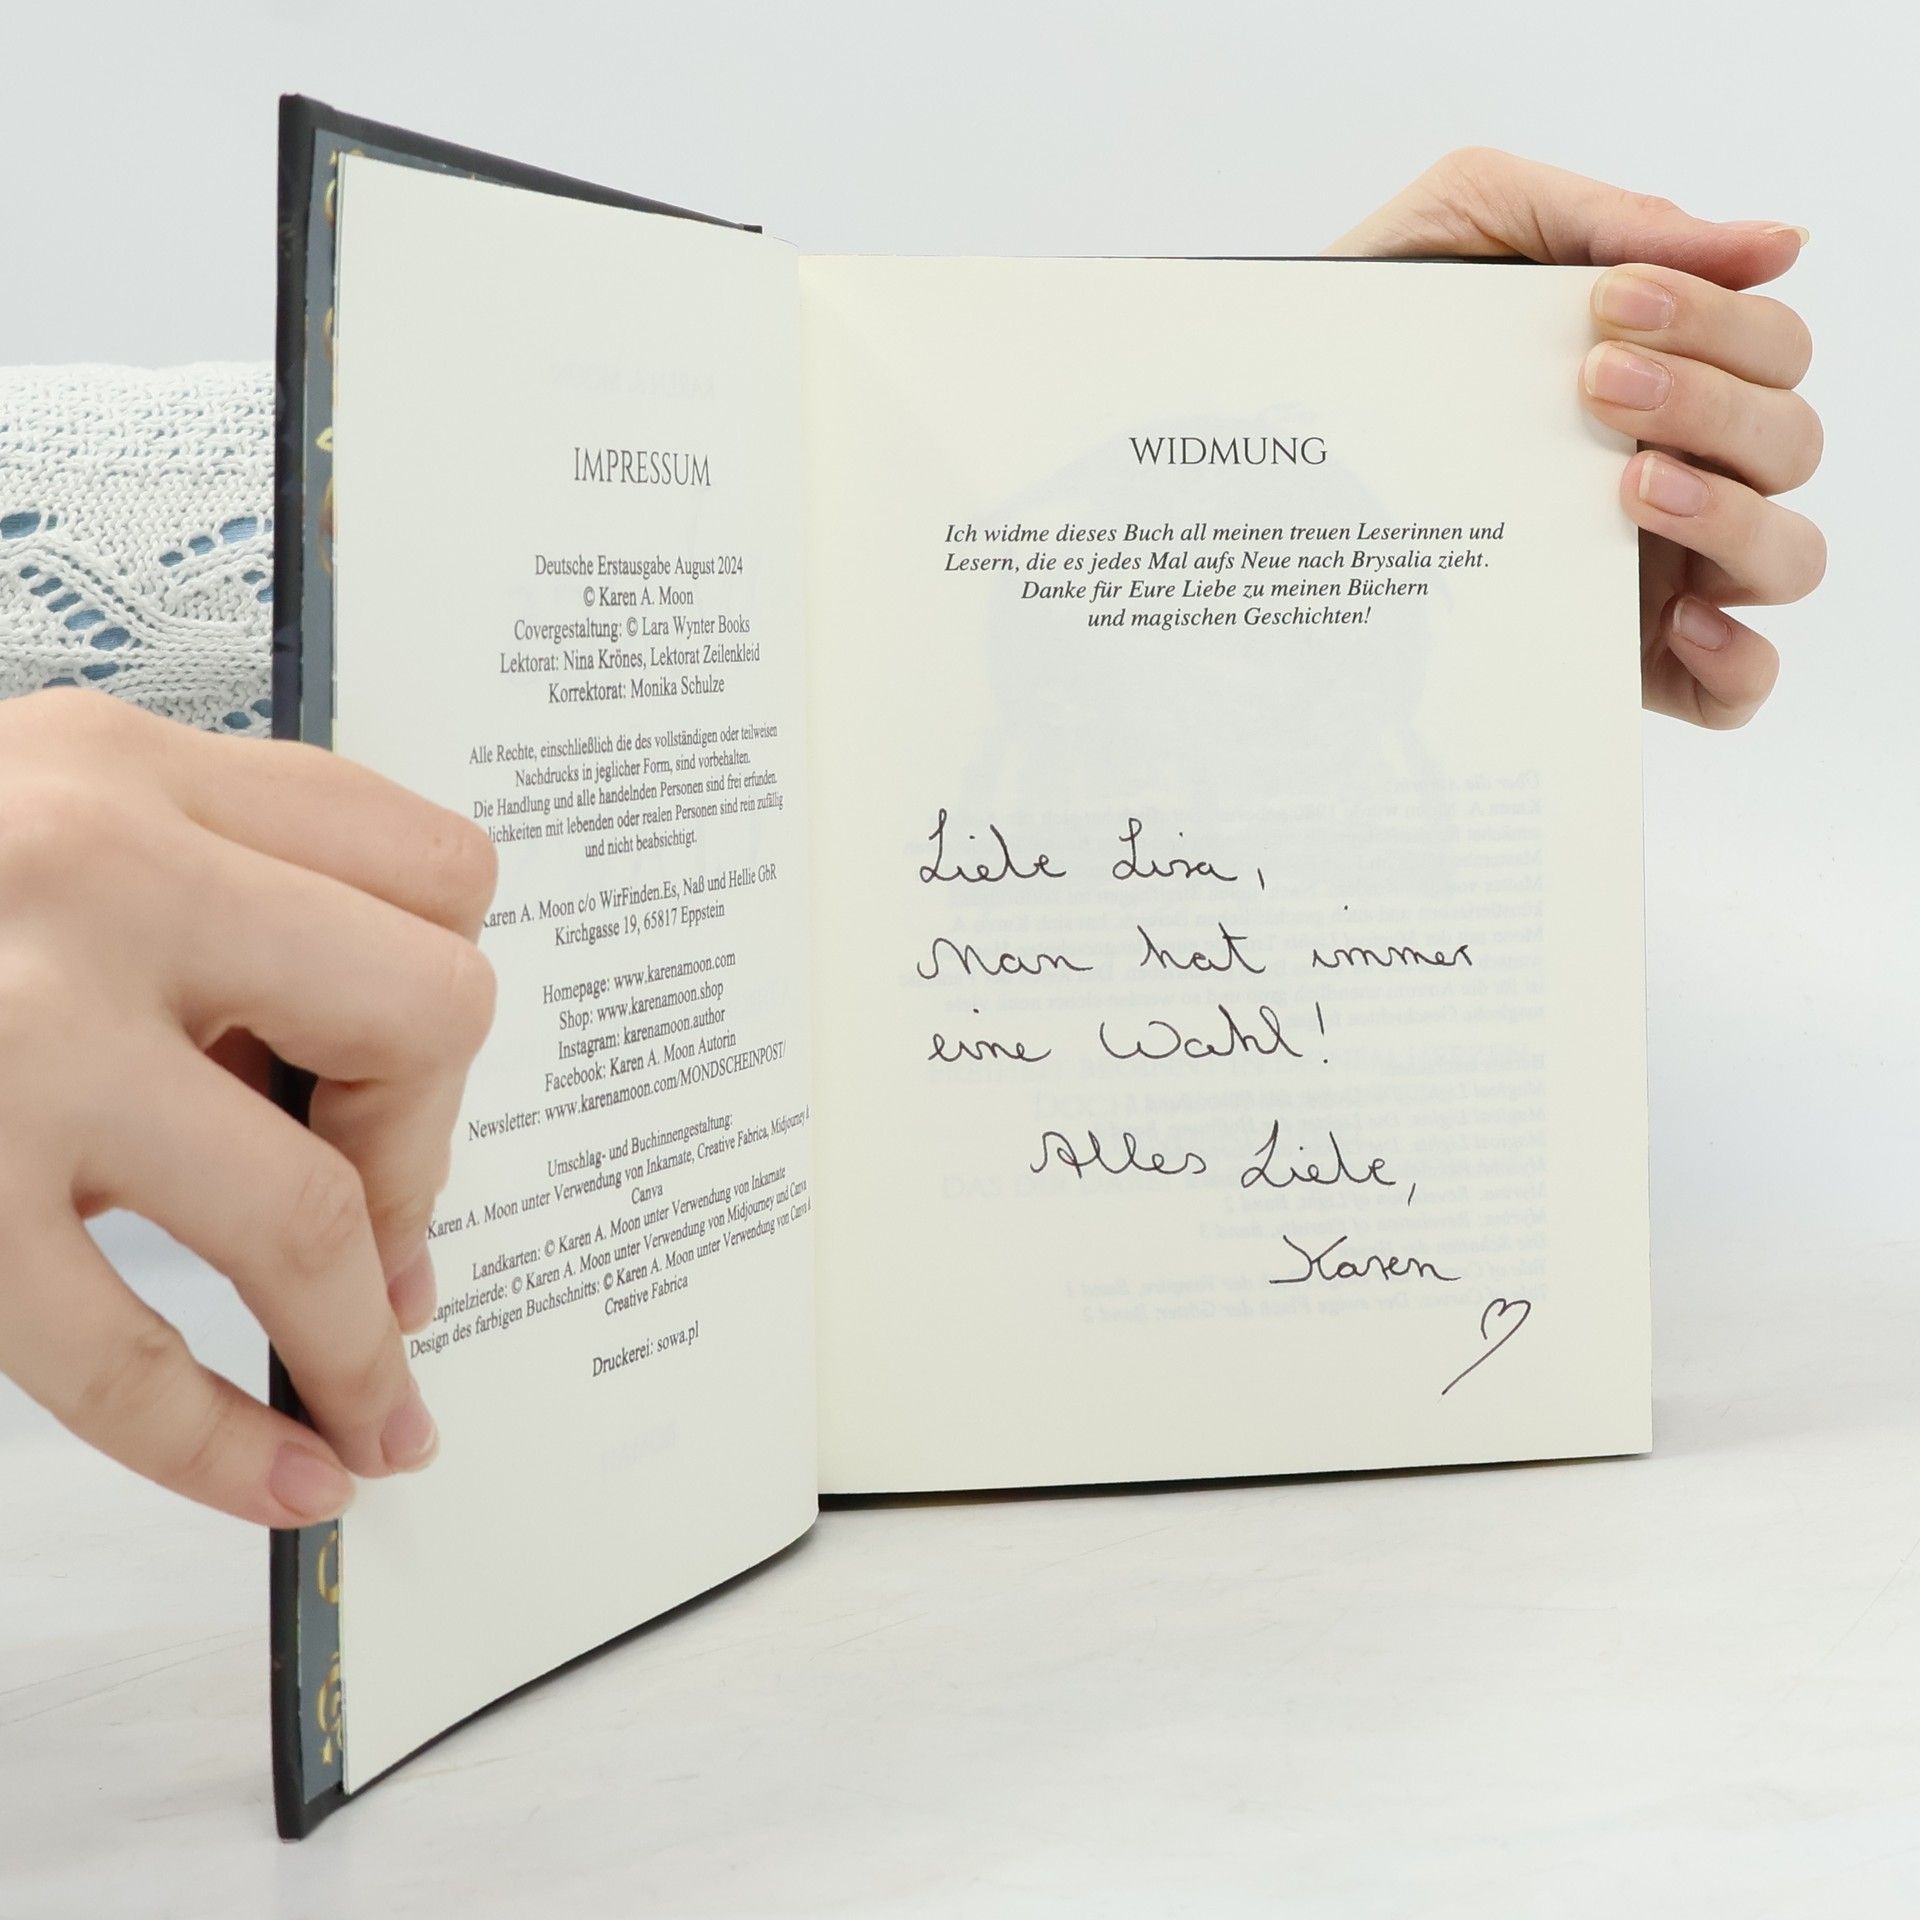 IMPRESSUM
Deutsche Erstausgabe August 2024
© Karen A. Moon
Covergestaltung: © Lara Wynter Books
Lektorat: Nina Krönes, Lektorat Zeilenkleid
Korrektorat: Monika Schulze
Alle Rechte, einschließlich die des vollständigen oder teilweisen
Nachdrucks in jeglicher Form, sind vorbehalten.
Die Handlung und alle handelnden Personen sind frei erfunden.
lichkeiten mit lebenden oder realen Personen sind rein zufällig
und nicht beabsichtigt.
Karen A. Moon c/o WirFinden.Es, Naß und Hellie GbR
Kirchgasse 19, 65817 Eppstein
Homepage: www.karenamoon.com
Shop: www.karenamoon.shop
Instagram: karenamoon.author
Facebook: Karen A. Moon Autorin
Newsletter: www.karenamoon.com/MONDSCHEINPOST/
Umschlag- und Buchinnengestaltung:
Karen A. Moon unter Verwendung von Inkarnate, Creative Fabrica, Midjourney &
Canva
Landkarten: © Karen A. Moon unter Verwendung von Inkarnate
apitelzierde: © Karen A. Moon unter Verwendung von Midjourney und Canva
Design des farbigen Buchschnitts: © Karen A. Moon unter Verwendung von Canva &
Creative Fabrica
Druckerei: sowa.pl
WIDMUNG
Ich widme dieses Buch all meinen treuen Leserinnen und
Lesern, die es jedes Mal aufs Neue nach Brysalia zieht.
Danke für Eure Liebe zu meinen Büchern
und magischen Geschichten!
Liebe Lisa,
Man hat immer
eine Wahl!
Alles Liebe,
Karen